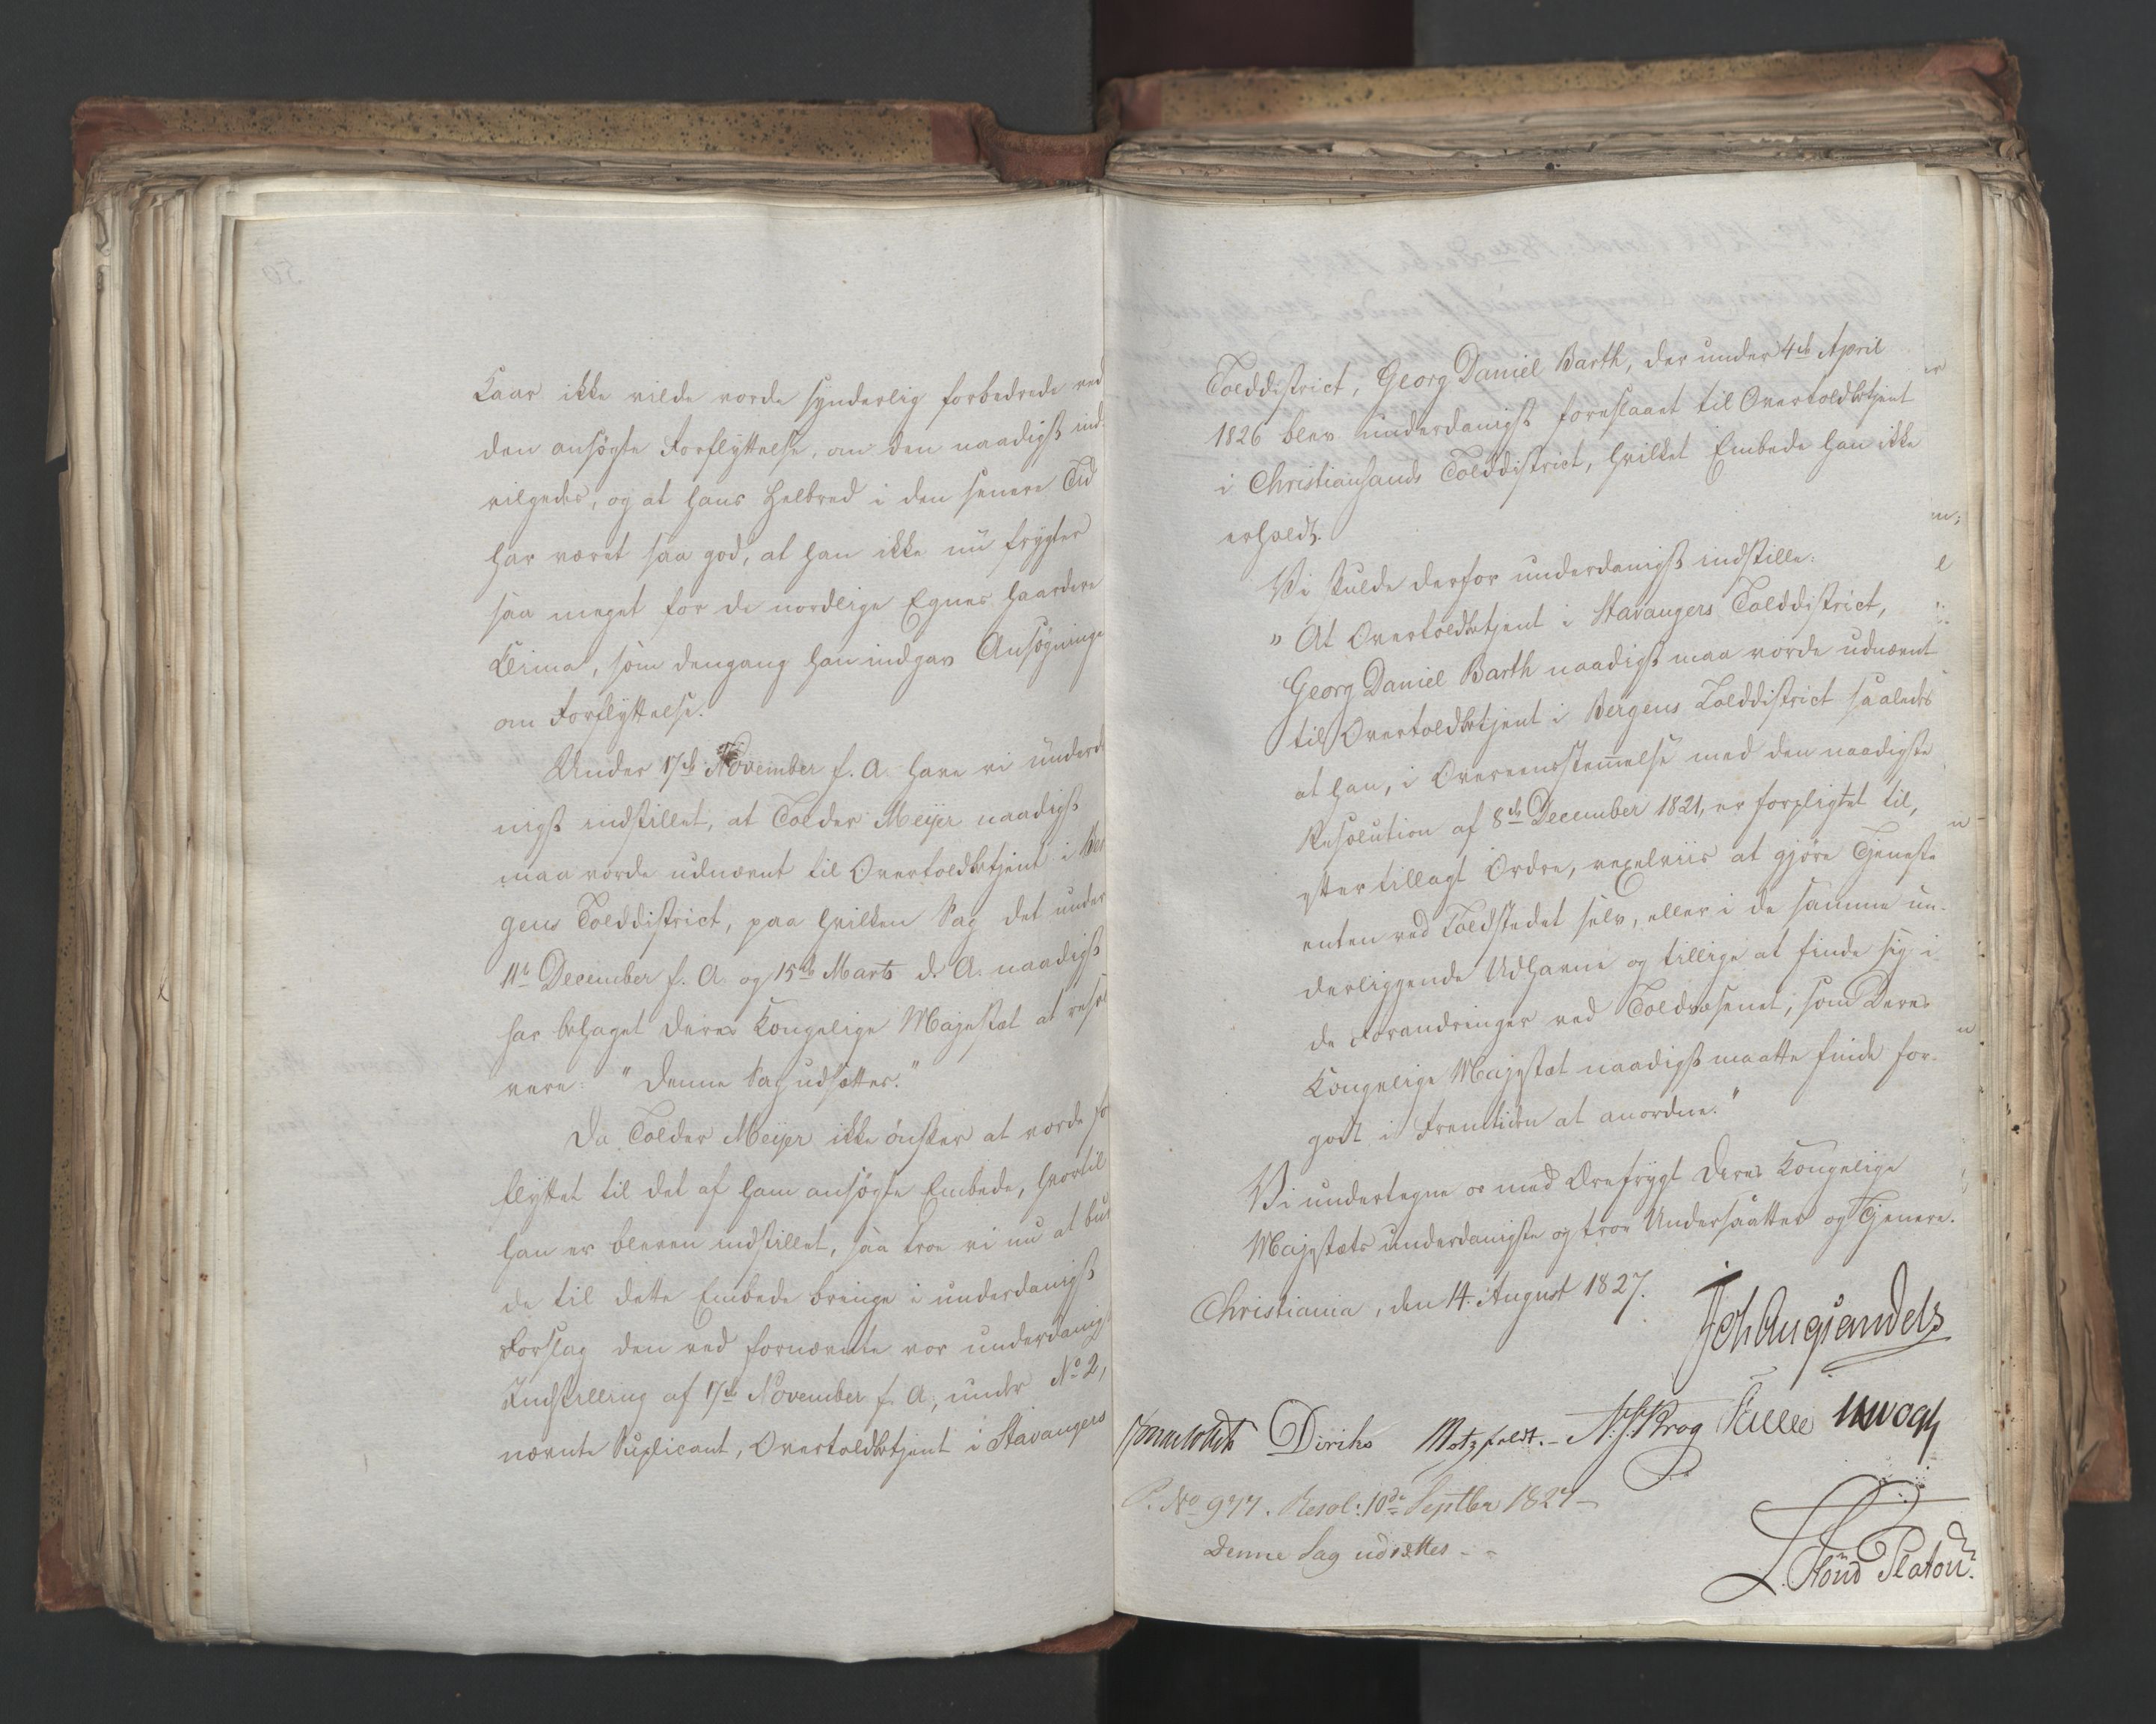 Kaar ikke vilde vorde synderlig forbedrede ved
den ansøgte Forflyttelse, om den naadigst ind-
vilgedes, og at hans Helbred i den senere Tid
har været saa god, at han ikke nu frygter
saa meget for de nordlige Egnes haardere
Clima, som dengang han indgav Ansøgninge
om Forflyttelse.
Under 17de November f. A. have vi underda
nigst indstillet, at Tolder Meyer naadigst
maa vorde udnævnt til Overtoldbetjent i Ber
gens Tolddistrict, paa hvilken Sag det under
11te December f. A. og 15de Marts d. A. naadigst
har behaget Deres Kongelige Majestæt at resol
vere: "Denne Sag udsættes."
Da Tolder Meyer ikke ønsker at vorde for
flyttet til det af ham ansøgte Embede, hvortil
han er bleven indstillet, saa troe vi nu at bur
de til dette Embede bringe i underdanigst
Forslag den ved fornævnte vor underdanigst
Indstilling af 17de November f. A., under No 2,
nævnte Suplicant, Overtoldbetjent i Stavangers
Tolddistrict, Georg Daniel Barth, der under 4de April
1826 blev underdanigst foreslaaet til Overtoldbetjent
i Christiansands Tolddistrict, hvilket Embede han ikke
erholdt.
Vi skulde derfor underdanigst indstille:
"At Overtoldbetjent i Stavangers Tolddistrict,
Georg Daniel Barth naadigst maa vorde udnævnt
til Overtoldbetjent i Bergens Tolddistrict saaledes
at han, i Overeensstemmelse med den naadigste
Resolution af 8de December 1821, er forpligtet til,
efter tillagt Ordre, vexelviis at gjøre Tjeneste
enten ved Toldstedet selv, eller i de samme un-
derliggende Udhavne og tillige at finde sig i
de Forandringer ved Toldvæsenet, som Deres
Kongelige Majestæt naadigst maatte finde for-
godt i Fremtiden at anordne."
Vi undertegne os med Ærefrygt Deres Kongelige
Majestæts underdanigste og troe Undersaatter og Tjenere.
Christiania, den 14. August 1827.
Joh Aug Sandels
Sommerhielm Diriks Motzfeldt. N. J. Krog Fasting
P. No 977. Resol: 10de Septbr 1827 –
Denne Sag udsættes –
L. Stoud Platou.